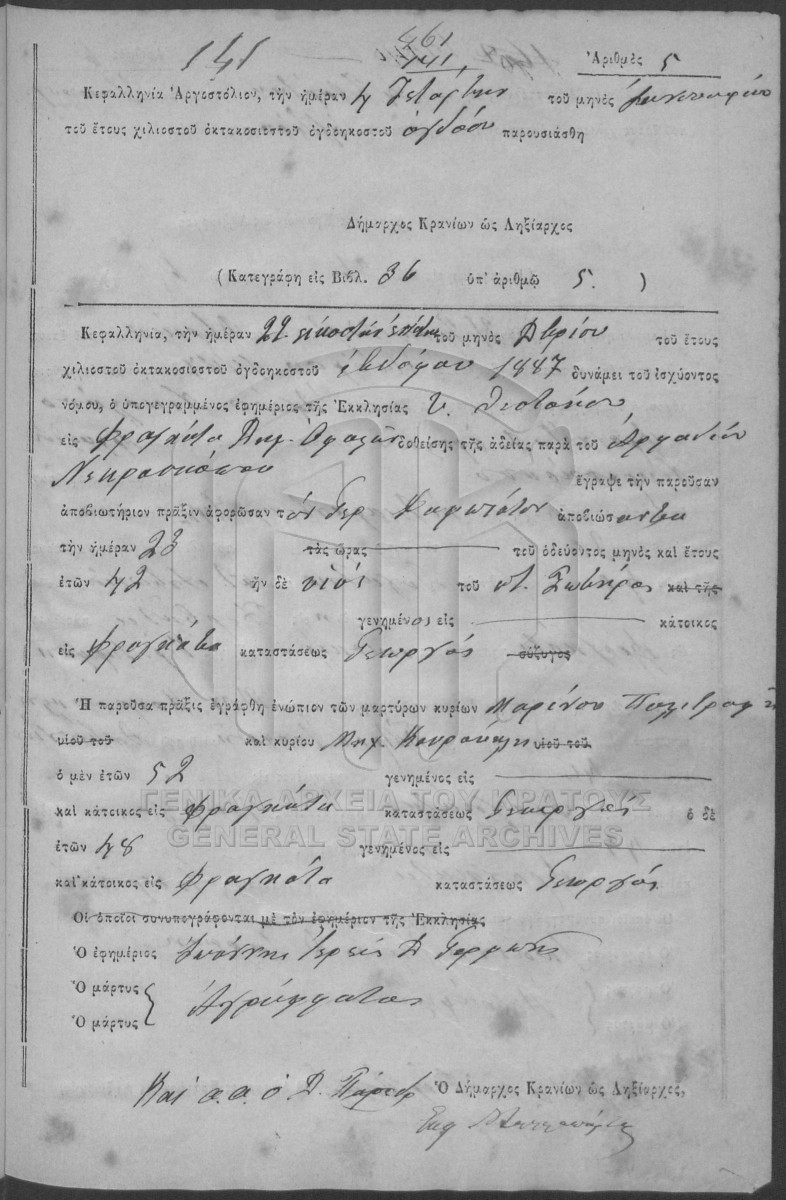 141 461
441
Ἀριθμὸς 5
Κεφαλληνία Ἀργοστόλιον, τὴν ἡμέραν 4 Τετάρτην τοῦ μηνὸς Ἰανουαρίου
τοῦ ἔτους χιλιοστοῦ ὀκτακοσιοστοῦ ὀγδοηκοστοῦ ὀγδόου παρουσιάσθη
Δήμαρχος Κρανίων ὡς Ληξίαρχος
(Κατεγράφη εἰς Βιβλ. 36 ὑπ' ἀριθμῷ 5. )
Κεφαλληνία, τὴν ἡμέραν εἰκοστὴν τοῦ μηνὸς Δβρίου τοῦ ἔτους
χιλιοστοῦ ὀκτακοσιοστοῦ ὀγδοηκοστοῦ ἑβδόμου 1887 δυνάμει τοῦ ἰσχύοντος
νόμου, ὁ ὑπογεγραμμένος ἐφημέριος τῆς Ἐκκλησίας Υ. Θεοτόκου
εἰς Φραγκάτα Δημ. Ὁμαλῶν δοθείσης τῆς ἀδείας παρὰ τοῦ Ἀρμοδίου
Νεκροσκόπου ἔγραψε τὴν παροῦσαν
ἀποβιωτήριον πρᾶξιν ἀφορῶσαν τὸν Γερ ἀποβιώσαντα
τὴν ἡμέραν 23 τὰς ὥρας τοῦ ὁδεύοντος μηνὸς καὶ ἔτους
ἐτῶν 42 ἦν δὲ υἱὸς τοῦ Σωτήρος καὶ τῆς
γενημένος εἰς κάτοικος
εἰς Φραγκάτα καταστάσεως Γεωργὸς σύζυγος
Ἡ παροῦσα πρᾶξις ἐγράφθη ἐνώπιον τῶν μαρτύρων κυρίων Μαρίνου
υἱοῦ τοῦ καὶ κυρίου Μιχ. υἱοῦ τοῦ
ὁ μὲν ἐτῶν 52 γενημένος εἰς
καὶ κάτοικος εἰς Φραγκάτα καταστάσεως Γεωργὸς ὁ δὲ
ΓΕΝΙΚΑ ΑΡΧΕΙΑ ΤΟΥ ΚΡΑΤΟΥΣ
GENERAL STATE ARCHIVES
ἐτῶν 48 γενημένος εἰς
καὶ κάτοικος εἰς Φραγκάτα καταστάσεως Γεωργὸς
Οἱ ὁποῖοι συνυπογράφονται μὲ τὸν ἐφημέριον τῆς Ἐκκλησίας
Ὁ ἐφημέριος Ἰωάννης Ἱερεὺς
Ὁ μάρτυς
Ἀγράμματοι
Ὁ μάρτυς
Καὶ α.α. ὁ Δ. Πάρεδρ
Ὁ Δήμαρχος Κρανίων ὡς Ληξίαρχος,